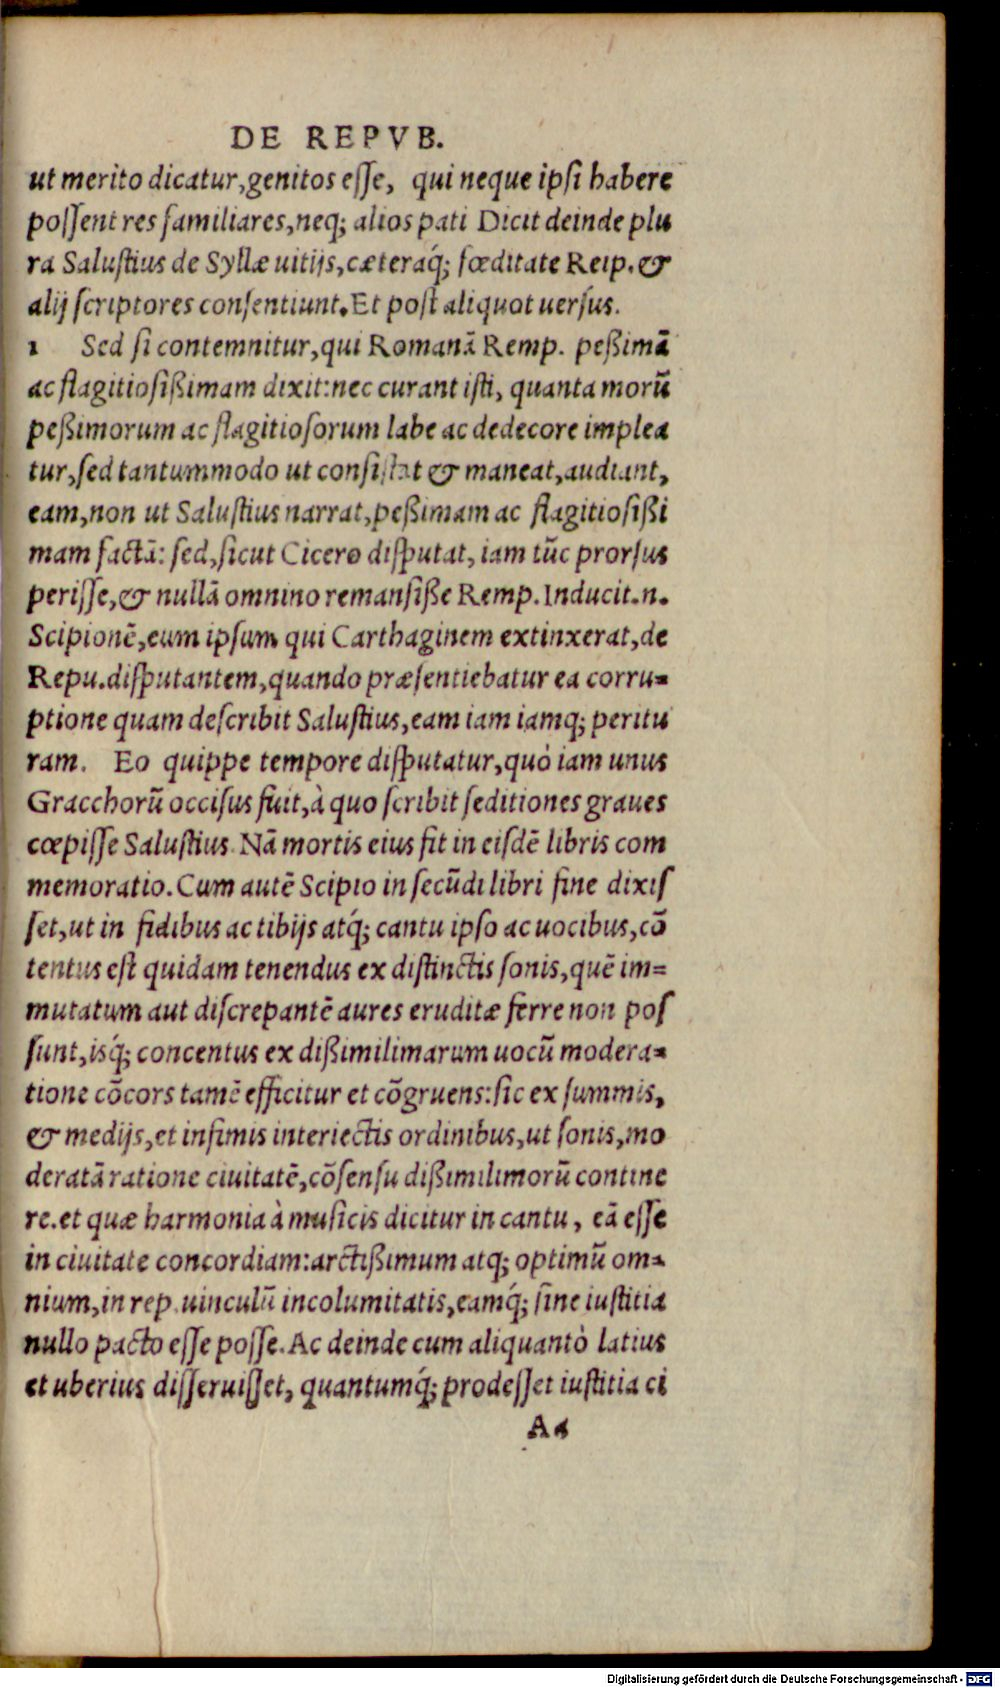 DE REPVB.
ut merito dicatur, genitos esse, qui neque ipsi habere
possent res familiares, neq; alios pati Dicit deinde plu
ra Salustius de Syllæ uitijs, cæteraq́; fœditate Reip. &
alij scriptores consentiunt. Et post aliquot uersus.
1 Sed si contemnitur, qui Romanā Remp. peßimā
ac flagitiosißimam dixit: nec curant isti, quanta morū
peßimorum ac flagitiosorum labe ac dedecore implea
tur, sed tantummodo ut consistat & maneat, audiant,
eam, non ut Salustius narrat, peßimam ac flagitiosißi
mam factā: sed, sicut Cicero disputat, iam tūc prorsus
perisse, & nullā omnino remansiße Remp. Inducit.n.
Scipionē, eum ipsum qui Carthaginem extinxerat, de
Repu. disputantem, quando præsentiebatur ea corru-
ptione quam describit Salustius, eam iam iamq; peritu
ram. Eo quippe tempore disputatur, quò iam unus
Gracchorū occisus fuit, à quo scribit seditiones graues
cœpisse Salustius. Nā mortis eius fit in eisdē libris com
memoratio. Cum autē Scipio in secūdi libri fine dixis
set, ut in fidibus ac tibijs atq́; cantu ipso ac uocibus, cō
tentus est quidam tenendus ex distinctis sonis, quē im=
mutatum aut discrepantē aures eruditæ ferre non pos
sunt, isq́; concentus ex dißimilimarum uocū modera-
tione cōcors tamē efficitur et cōgruens: sic ex summis,
& medijs, et infimis interiectis ordinibus, ut sonis, mo
deratā ratione ciuitatē, cōsensu dißimilimorū contine
re. et quæ harmonia à musicis dicitur in cantu, eā esse
in ciuitate concordiam: arctißimum atq; optimū om-
nium, in rep. uinculū incolumitatis, eamq́; sine iustitia
nullo pacto esse posse. Ac deinde cum aliquantò latius
et uberius disseruisset, quantumq́; prodesset iustitia ci
Digitalisierung gefördert durch die Deutsche Forschungsgemeinschaft - DFG